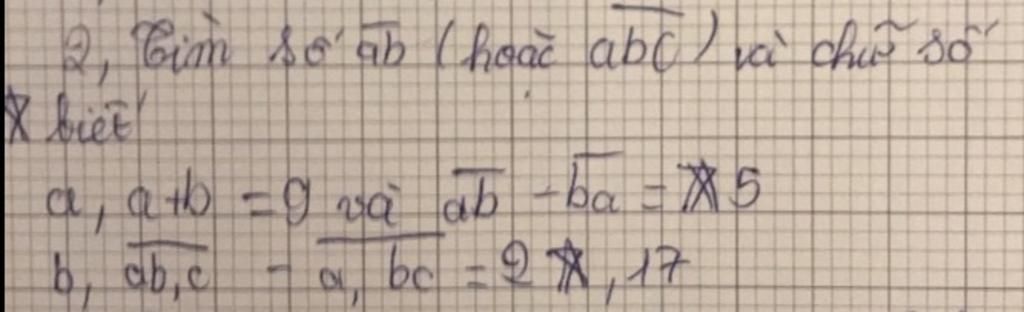 2, Tìm số ab (hoặc abc) và chữ số
* biết
a, a+b = 9 và ab - ba = *5
b, ab,c - a,bc = 2*,17